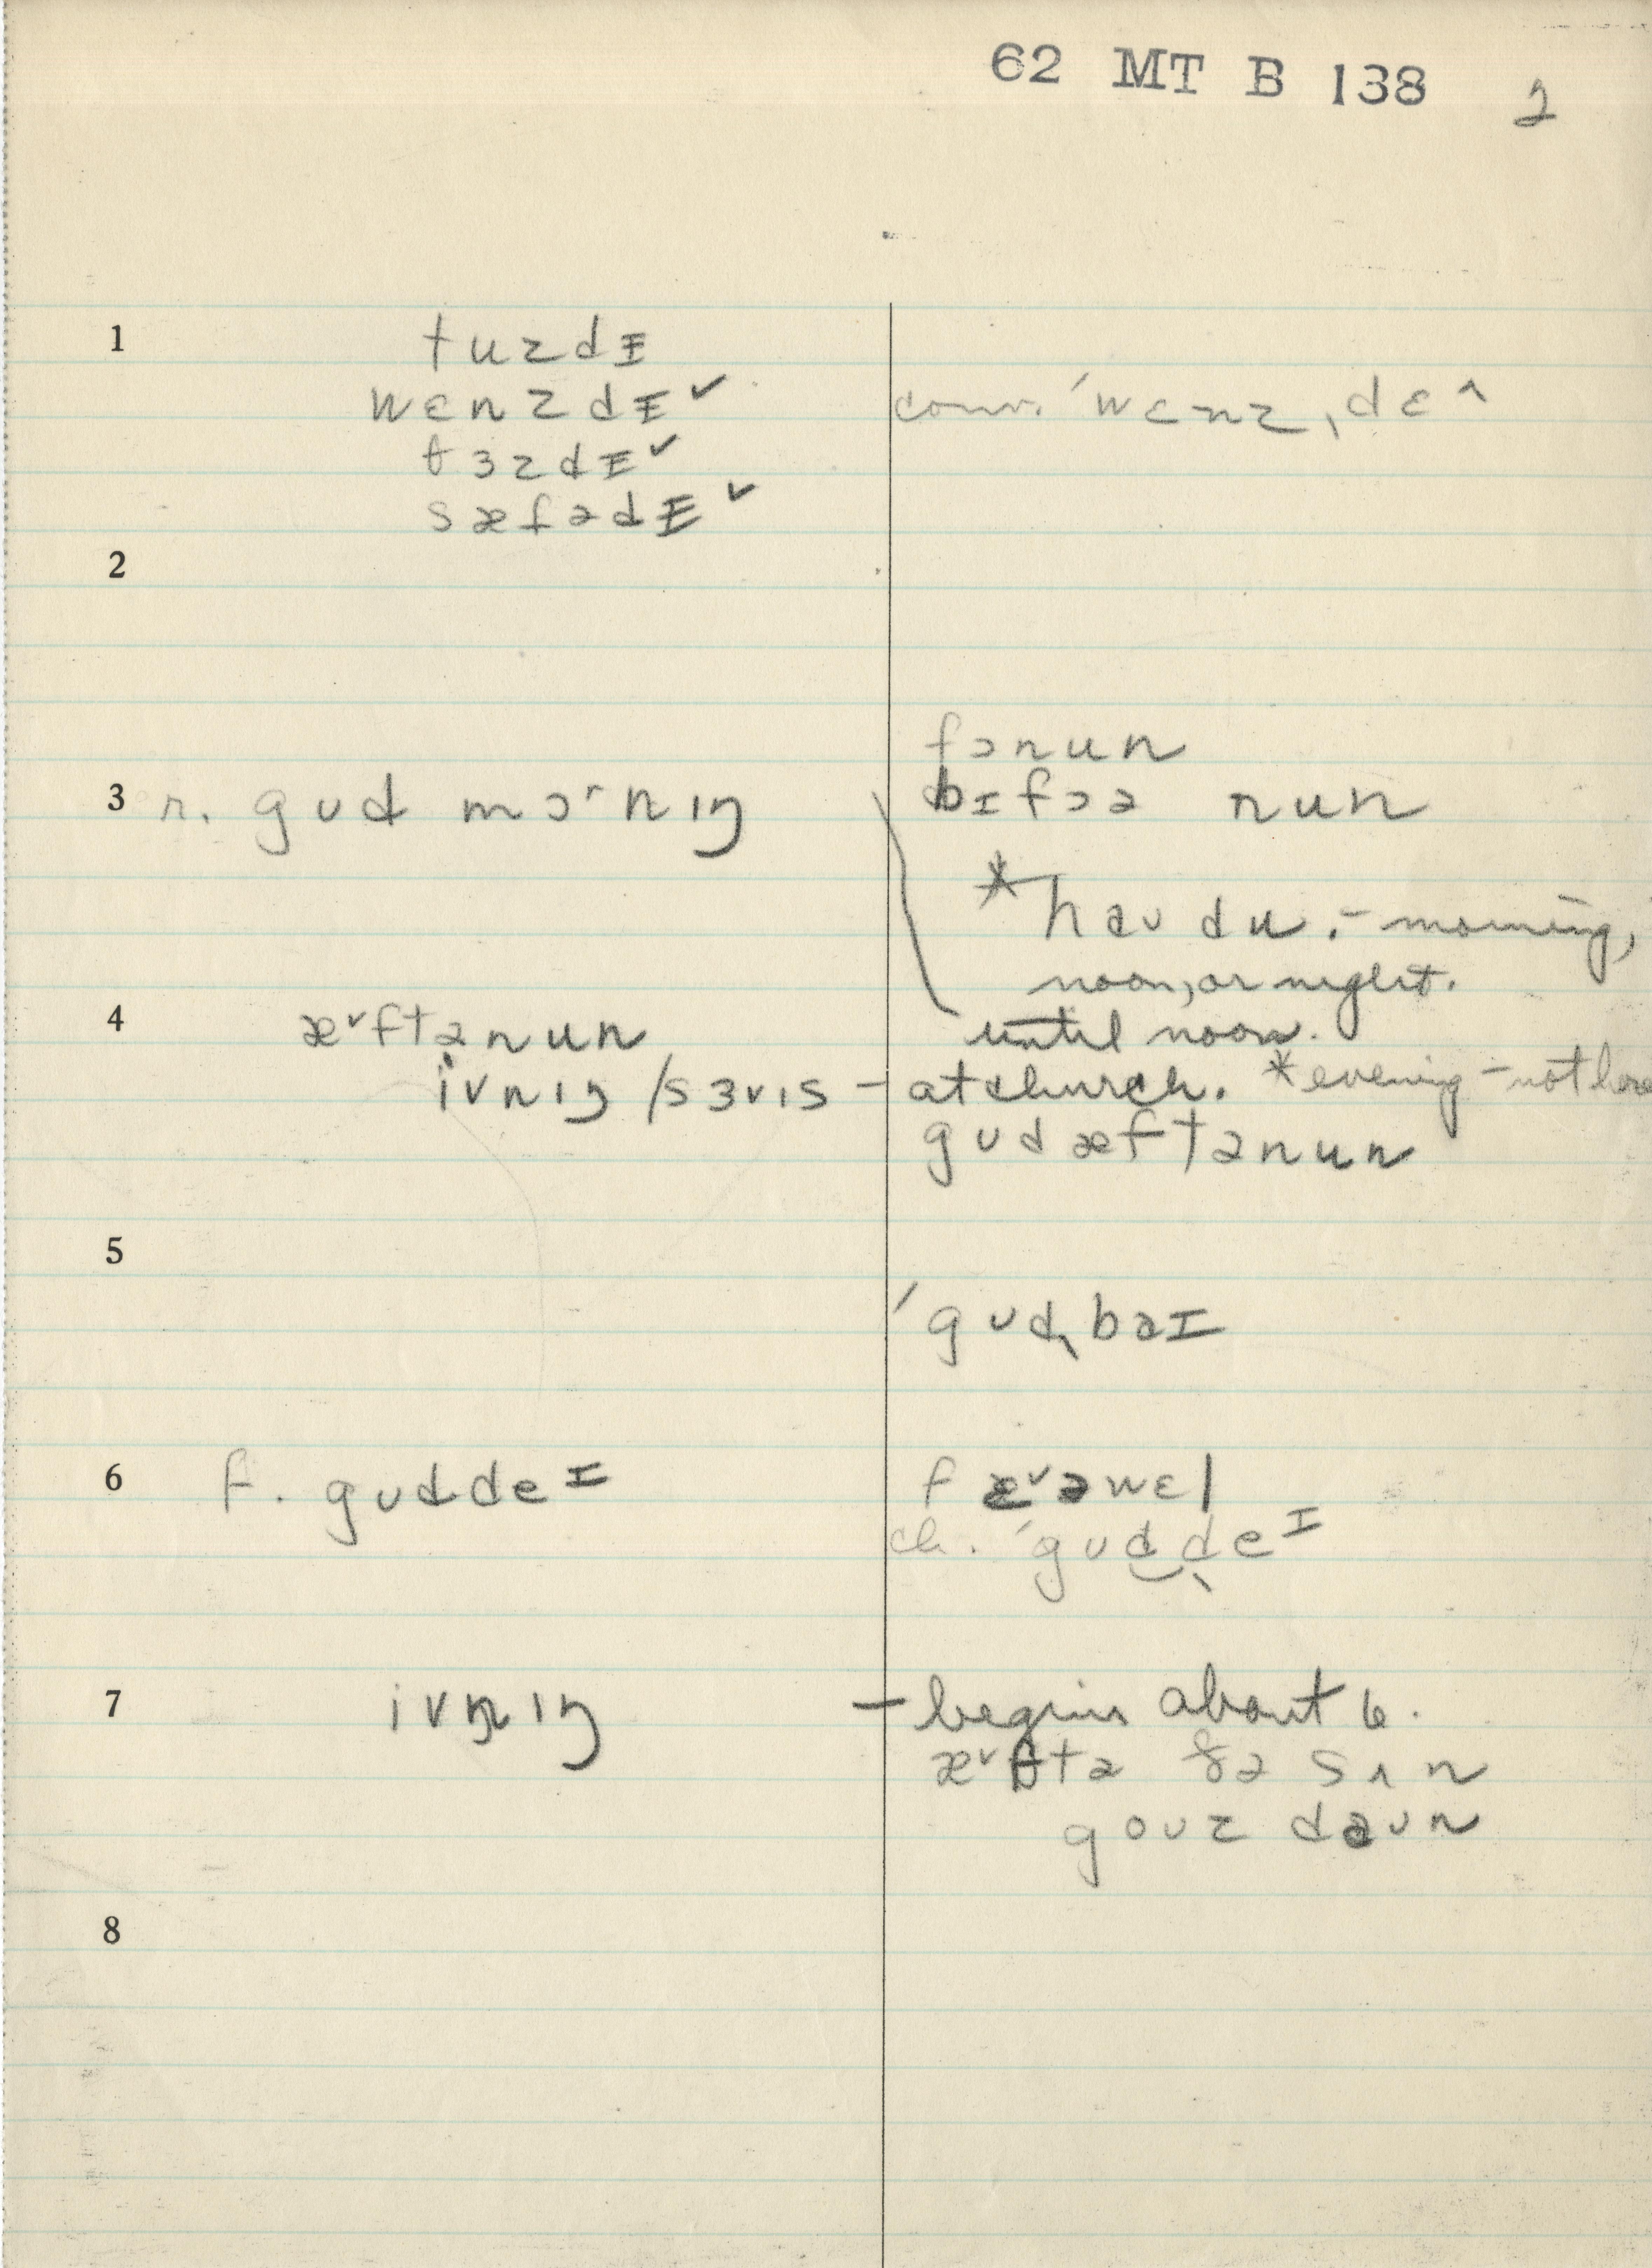 62 MT B 138 2
1 tuzdɪ
wɛnzdɪ ✓ conv. ˈwɛnzˌdɛ^
tɜzdɪ ✓
sæfədɪ ✓
2
fɔnun
3 r. gʊd mɔ˞nɪŋ bɪfɔə nun
* haʊ du. – morning,
noon, or night.
until noon.
4 æ˅ftənun
ivnɪŋ /sɜvɪs – at church. * evening – not here
gʊd æftənun
5
ˈgʊdˌbaɪ
6 f. gʊddeɪ fæ˅əwɛl
ch. ˈgʊdˌdeɪ
7 ivn̩ɪŋ – begins about 6.
æ˅ftə ðə sʌn
goʊz daʊn
8